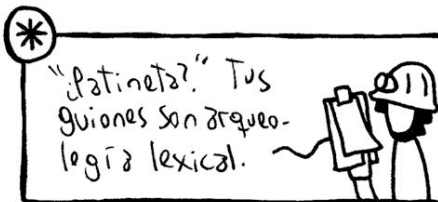 "¿Patineta?" Tus
guiones son arqueo-
logía lexical.